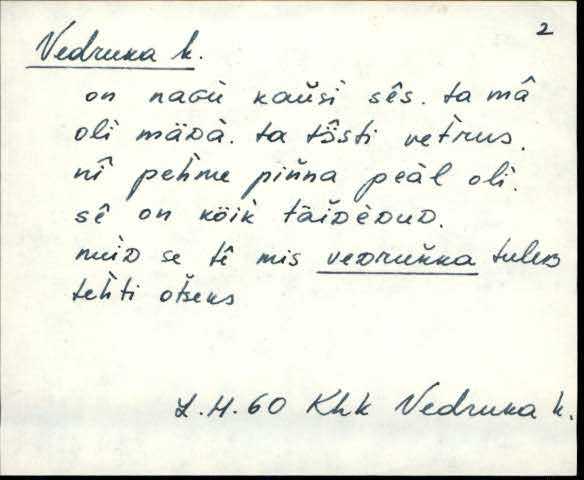 2
Vedruka k.
on naɢù᷆ kaŭsi sês. ta mâ
oli mäᴅà. ta tôsti vet̀rus.
nî pehme piňna peàl oli.
sê on kõik täiᴅèᴅuᴅ.
nuiᴅ se tê mis veᴅruňka tuleʙ
tehti otseks
L.H. 60 Khk Vedruka k.